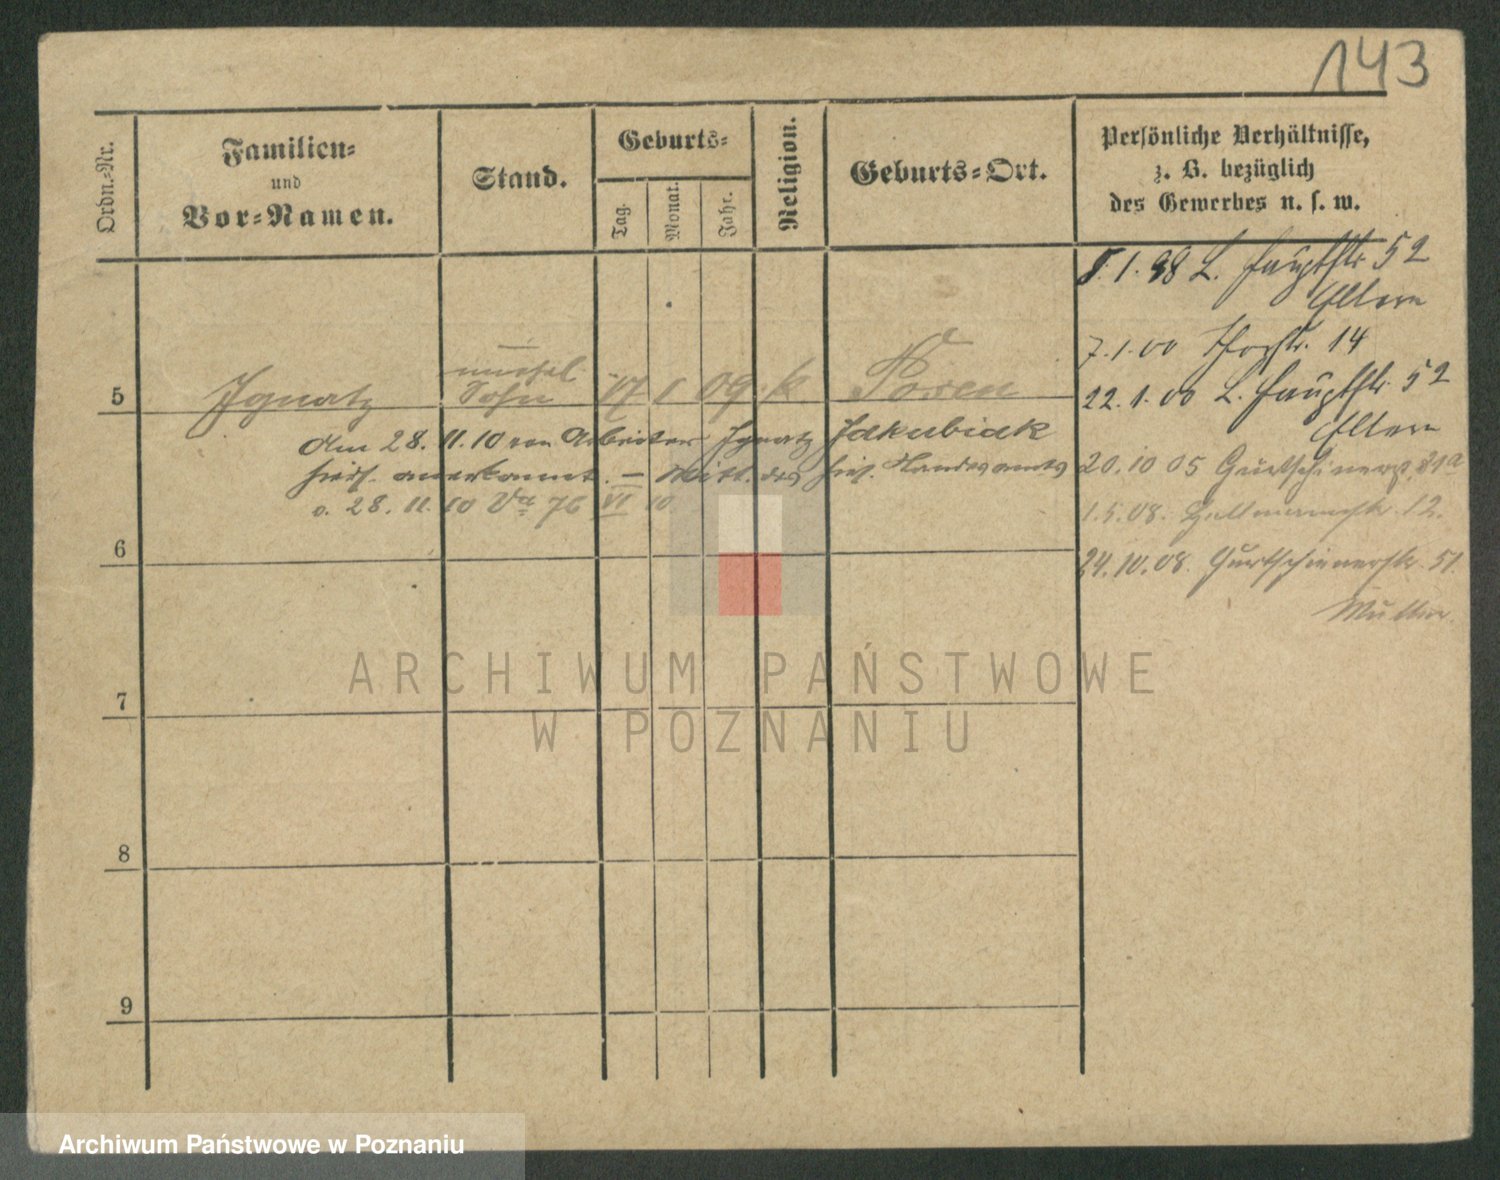 143
Ordn.-Nr.
Familien-
und
Vor-Namen.
Stand.
Geburts-
Tag.
Monat.
Jahr.
Religion.
Geburts-Ort.
Persönliche Verhältnisse,
z. B. bezüglich
des Gewerbes u. s. w.
1. 98 L. Hauptstr. 52
Eltern
7. 1. 00 14
22. 1. 00 L. Hauptstr. 52
Eltern
20. 10 05
1. 5. 08. 12.
24. 10. 08. Gurtschinerstr. 51.
Mutter
5 Ignatz unehel. Sohn 17 1 09 k. Posen
Am 28. 11. 10 von Arbeiter Ignatz Jakubiak
hies. anerkannt. — Mitt. des hies. Standesamts
v. 28. 11. 10 Va 76 VI 10.
6
7
8
9
ARCHIWUM PAŃSTWOWE
W POZNANIU
Archiwum Państwowe w Poznaniu